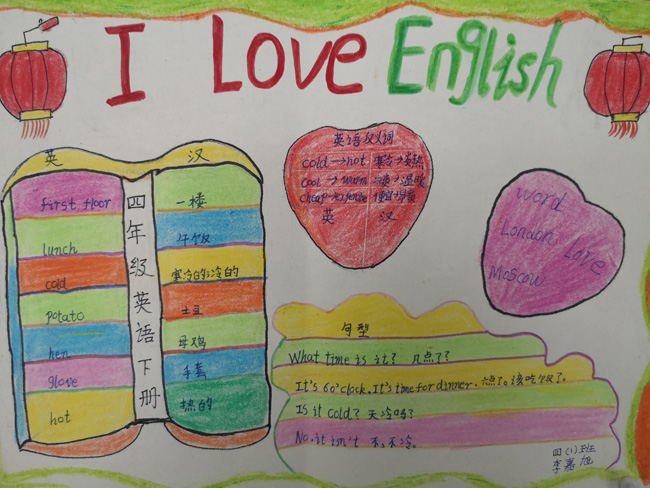 I Love English
英 汉
四年级英语下册
first floor 一楼
lunch 午饭
cold 寒冷的;冷的
potato 土豆
hen 母鸡
glove 手套
hot 热的
英语反义词
cold → hot 寒冷→炎热
cool → warm →温暖
cheap → 便宜→昂贵
英 汉
word
London Love
Moscow
句型
What time is it? 几点了?
It's 6 o'clock. It's time for dinner. 六点了。该吃饭了。
Is it cold? 天冷吗?
No, it isn't 不,不冷。
四(1)班
李嘉旭